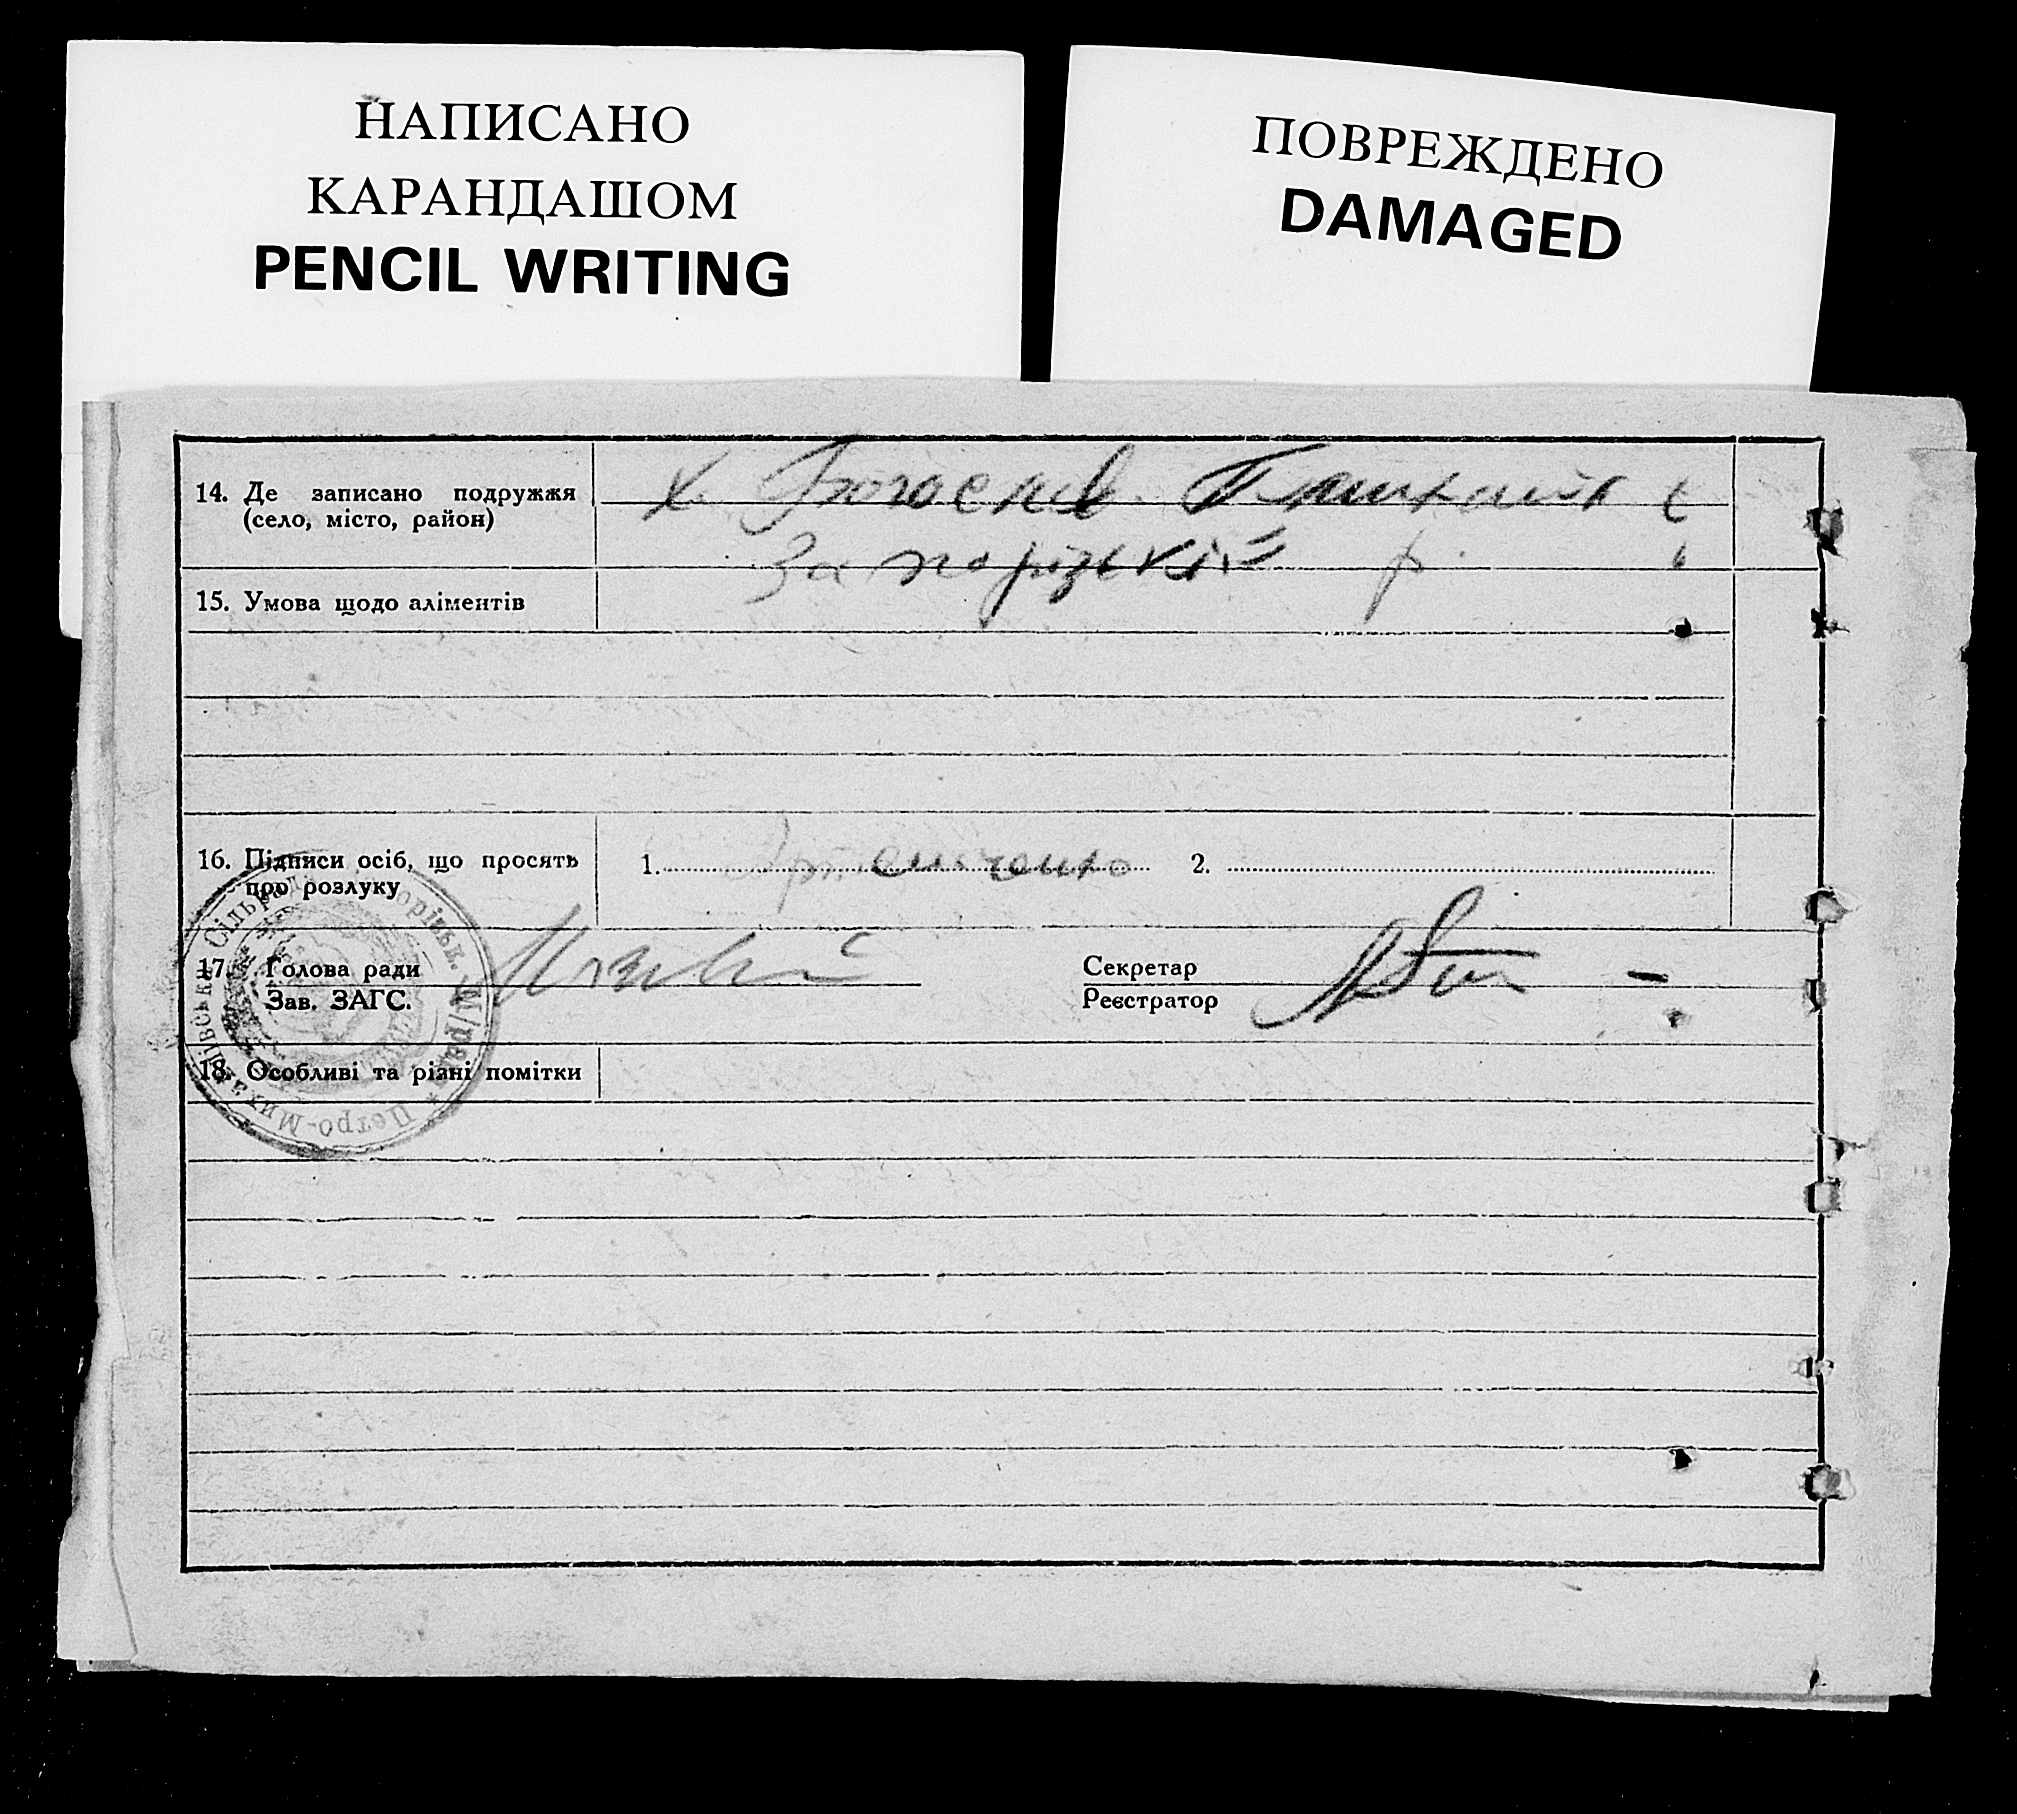 НАПИСАНО
КАРАНДАШОМ
PENCIL WRITING
ПОВРЕЖДЕНО
DAMAGED
14. Де записано подружжя
(село, місто, район)
х.
Запорізькій р.
15. Умова щодо аліментів
16. Підписи осіб, що просять
про розлуку
1.
2.
17. Голова ради
Зав. ЗАГС.
Секретар
Реєстратор
18. Особливі та різні помітки
Петро-Михайлівська Сільрада